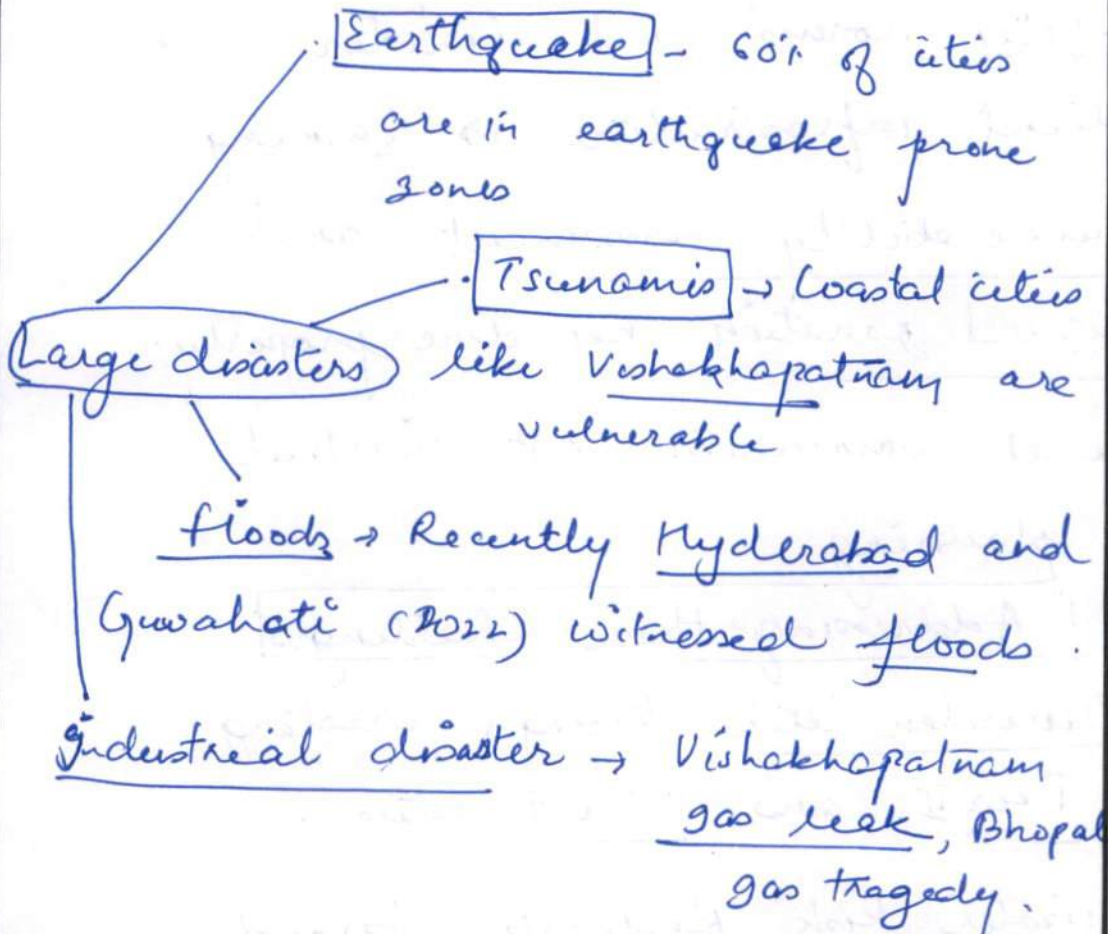 . Earthquake - 60% of cities
are in earthquake prone
zones
. Tsunamis → Coastal cities
Large disasters like Vishakhapatnam are
vulnerable
floods → Recently Hyderabad and
Guwahati (2022) witnessed floods.
Industrial disaster → Vishakhapatnam
gas leak, Bhopal
gas tragedy.